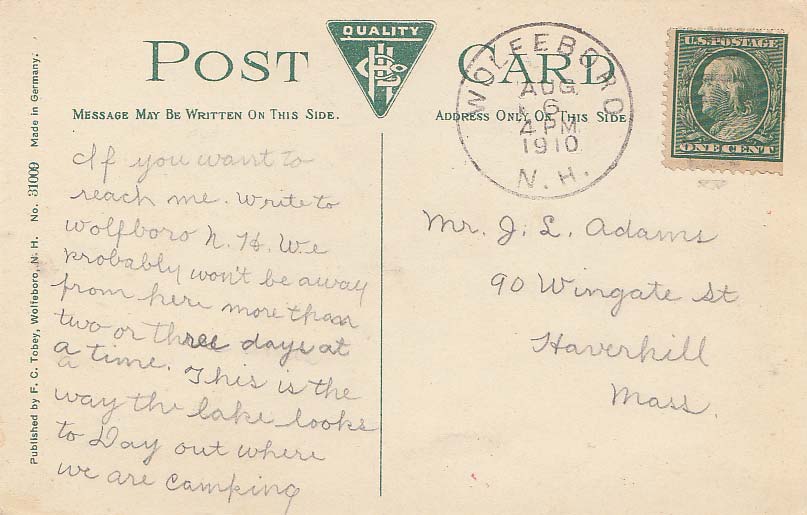 POST CARD
QUALITY
MESSAGE MAY BE WRITTEN ON THIS SIDE.
ADDRESS ONLY ON THIS SIDE
WOLFEBORO
AUG
6
4 PM
1910
N. H.
U.S. POSTAGE
ONE CENT
Published by F. C. Tobey, Wolfeboro, N. H. No. 31009 Made in Germany.
If you want to
reach me. write to
wolfboro N. H. We
probably won't be away
from here more than
two or three days at
a time. This is the
way the lake looks
to Day out where
we are camping
Mr. J. L. Adams
90 Wingate St
Haverhill
Mass.